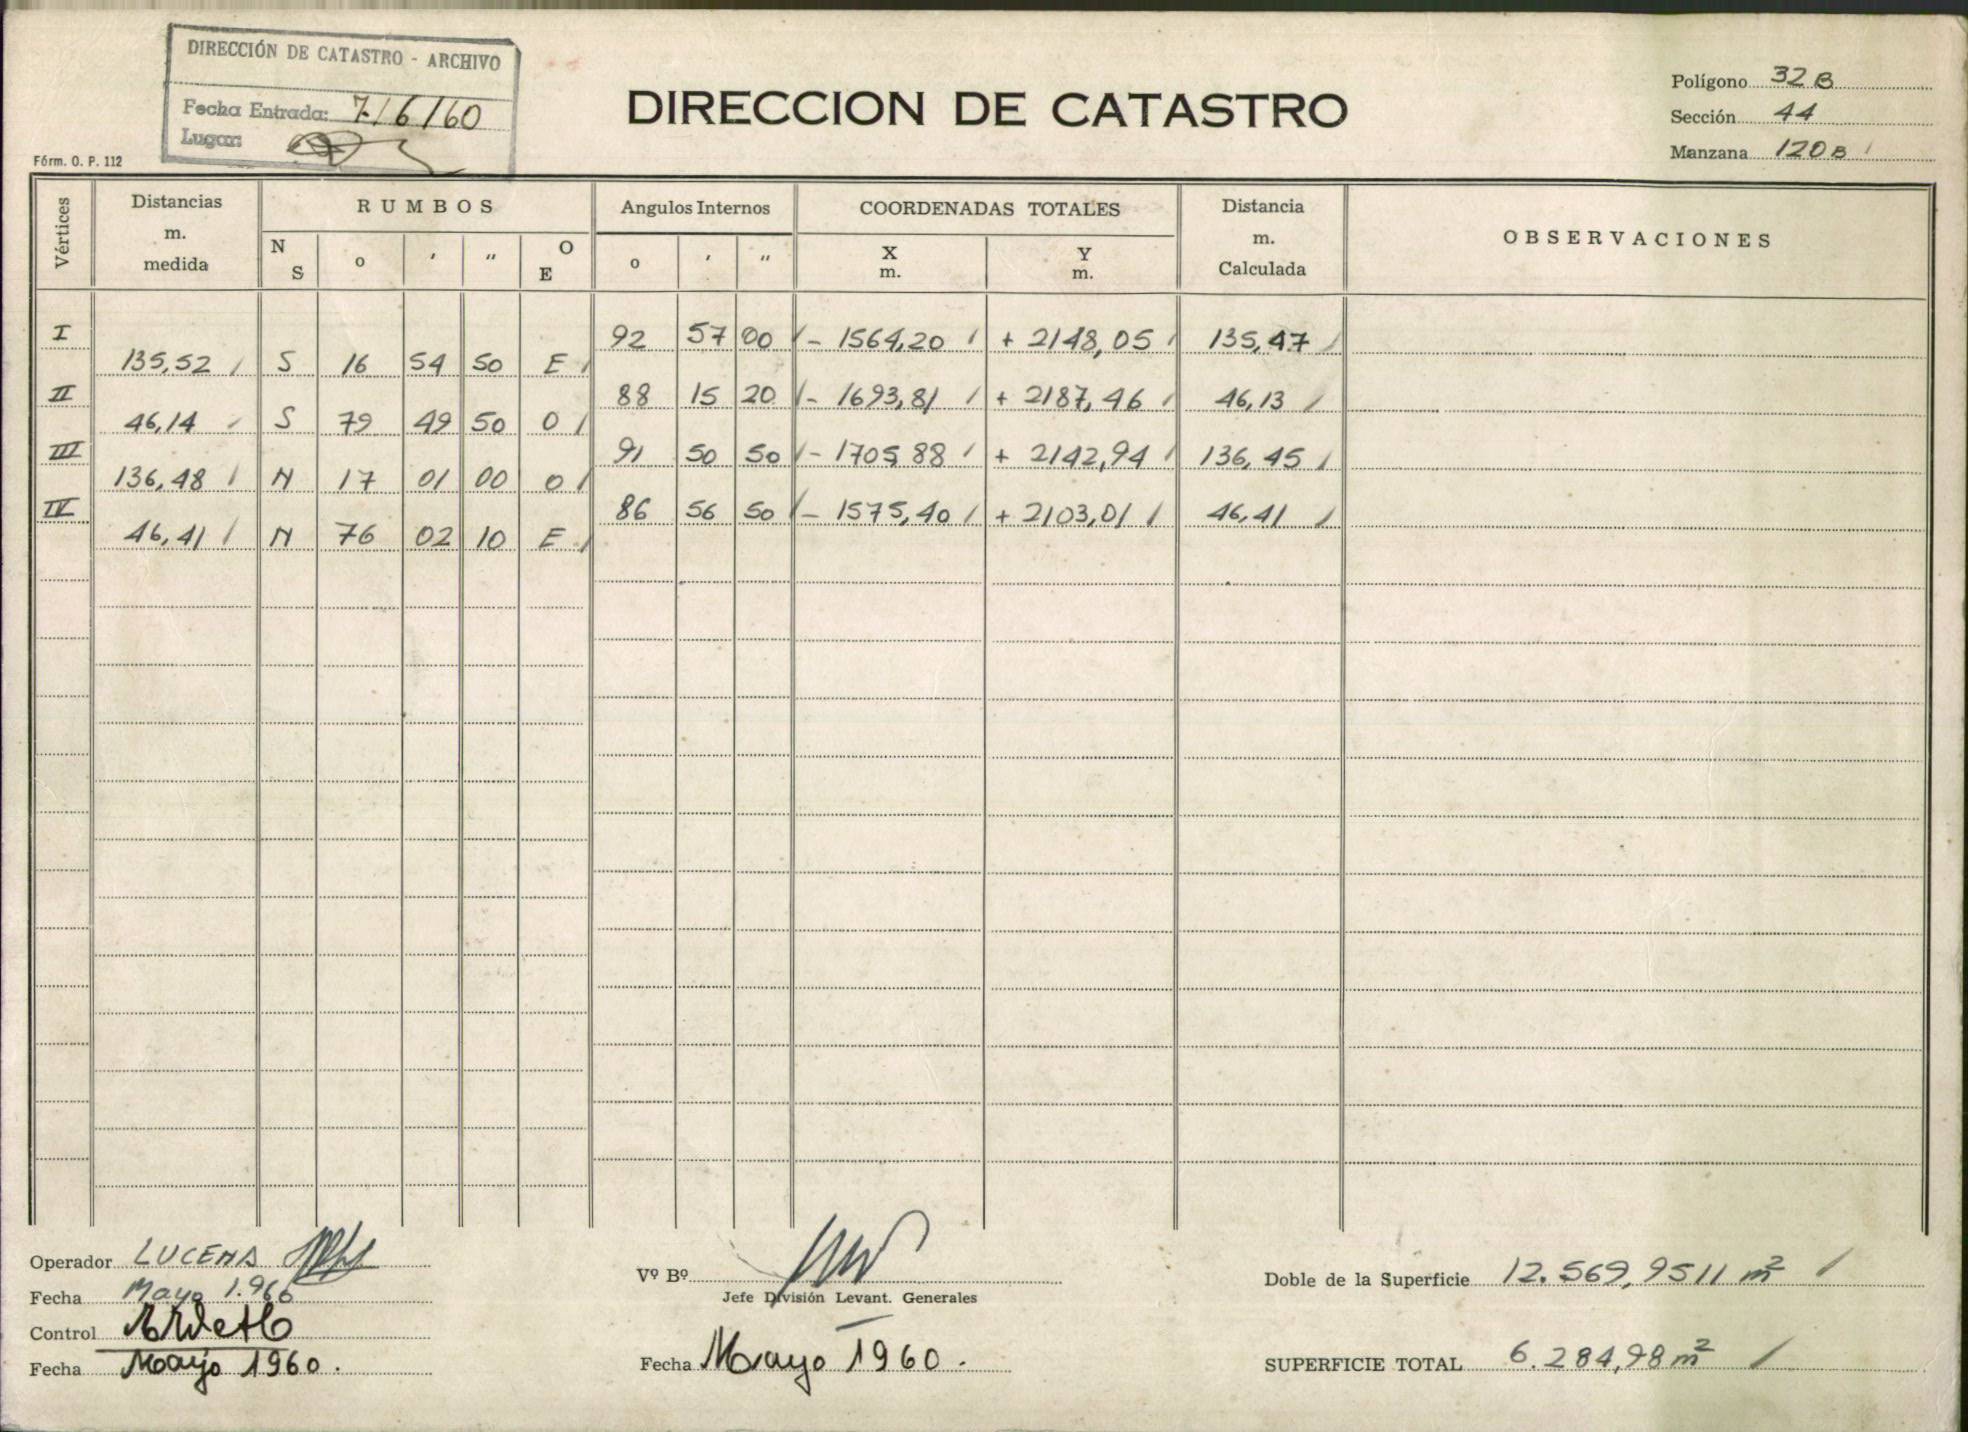 DIRECCIÓN DE CATASTRO - ARCHIVO
Fecha Entrada: 7/6/60
Lugar:
Fórm. O. P. 112
DIRECCION DE CATASTRO
Polígono 32 B
Sección 44
Manzana 120 B
Vértices
Distancias m. medida
RUMBOS
N S
o
'
"
O E
Angulos Internos
o
'
"
COORDENADAS TOTALES
X m.
Y m.
Distancia m. Calculada
OBSERVACIONES
I 92 57 00 - 1564,20 + 2148,05 135,47
135,52 S 16 54 50 E
II 88 15 20 - 1693,81 + 2187,46 46,13
46,14 S 79 49 50 O
III 91 50 50 - 1705 88 + 2142,94 136,45
136,48 N 17 01 00 O
IV 86 56 50 - 1575,40 + 2103,01 46,41
46,41 N 76 02 10 E
Operador LUCENA
Fecha Mayo 1.966
Control
Fecha Mayo 1960.
Vº Bº
Jefe División Levant. Generales
Fecha Mayo 1960.
Doble de la Superficie 12.569,9511 m²
SUPERFICIE TOTAL 6.284,98 m²